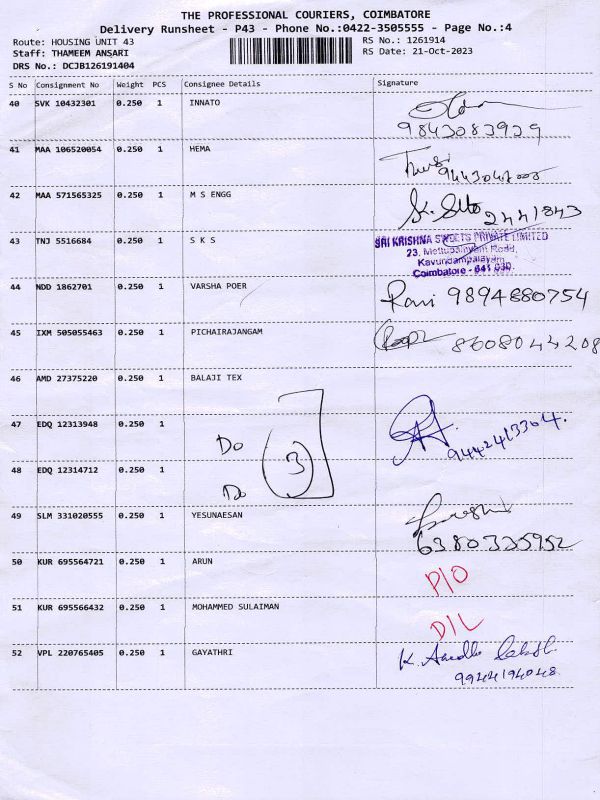 THE PROFESSIONAL COURIERS, COIMBATORE
Delivery Runsheet - P43 - Phone No.:0422-3505555 - Page No.:4
Route: HOUSING UNIT 43 RS No.: 1261914
Staff: THAMEEM ANSARI RS Date: 21-Oct-2023
DRS No.: DCJB126191404
S No Consignment No Weight PCS Consignee Details Signature
40 SVK 10432301 0.250 1 INNATO
9843083929
41 MAA 106520054 0.250 1 HEMA
42 MAA 571565325 0.250 1 M S ENGG
2441843
43 TNJ 5516684 0.250 1 S K S
SRI KRISHNA SWEETS PRIVATE LIMITED
23, Mettupalayam Road,
Kavundampalayam
Coimbatore - 641 030.
44 NDD 1862701 0.250 1 VARSHA POER
Rani 9894880754
45 IXM 505055463 0.250 1 PICHAIRAJANGAM
8608044208
46 AMD 27375220 0.250 1 BALAJI TEX
47 EDQ 12313948 0.250 1
Do
9442413304.
3
48 EDQ 12314712 0.250 1
Do
49 SLM 331020555 0.250 1 YESUNAESAN
6380335952
50 KUR 695564721 0.250 1 ARUN
P/O
51 KUR 695566432 0.250 1 MOHAMMED SULAIMAN
D/L
52 VPL 220765405 0.250 1 GAYATHRI
9944194048